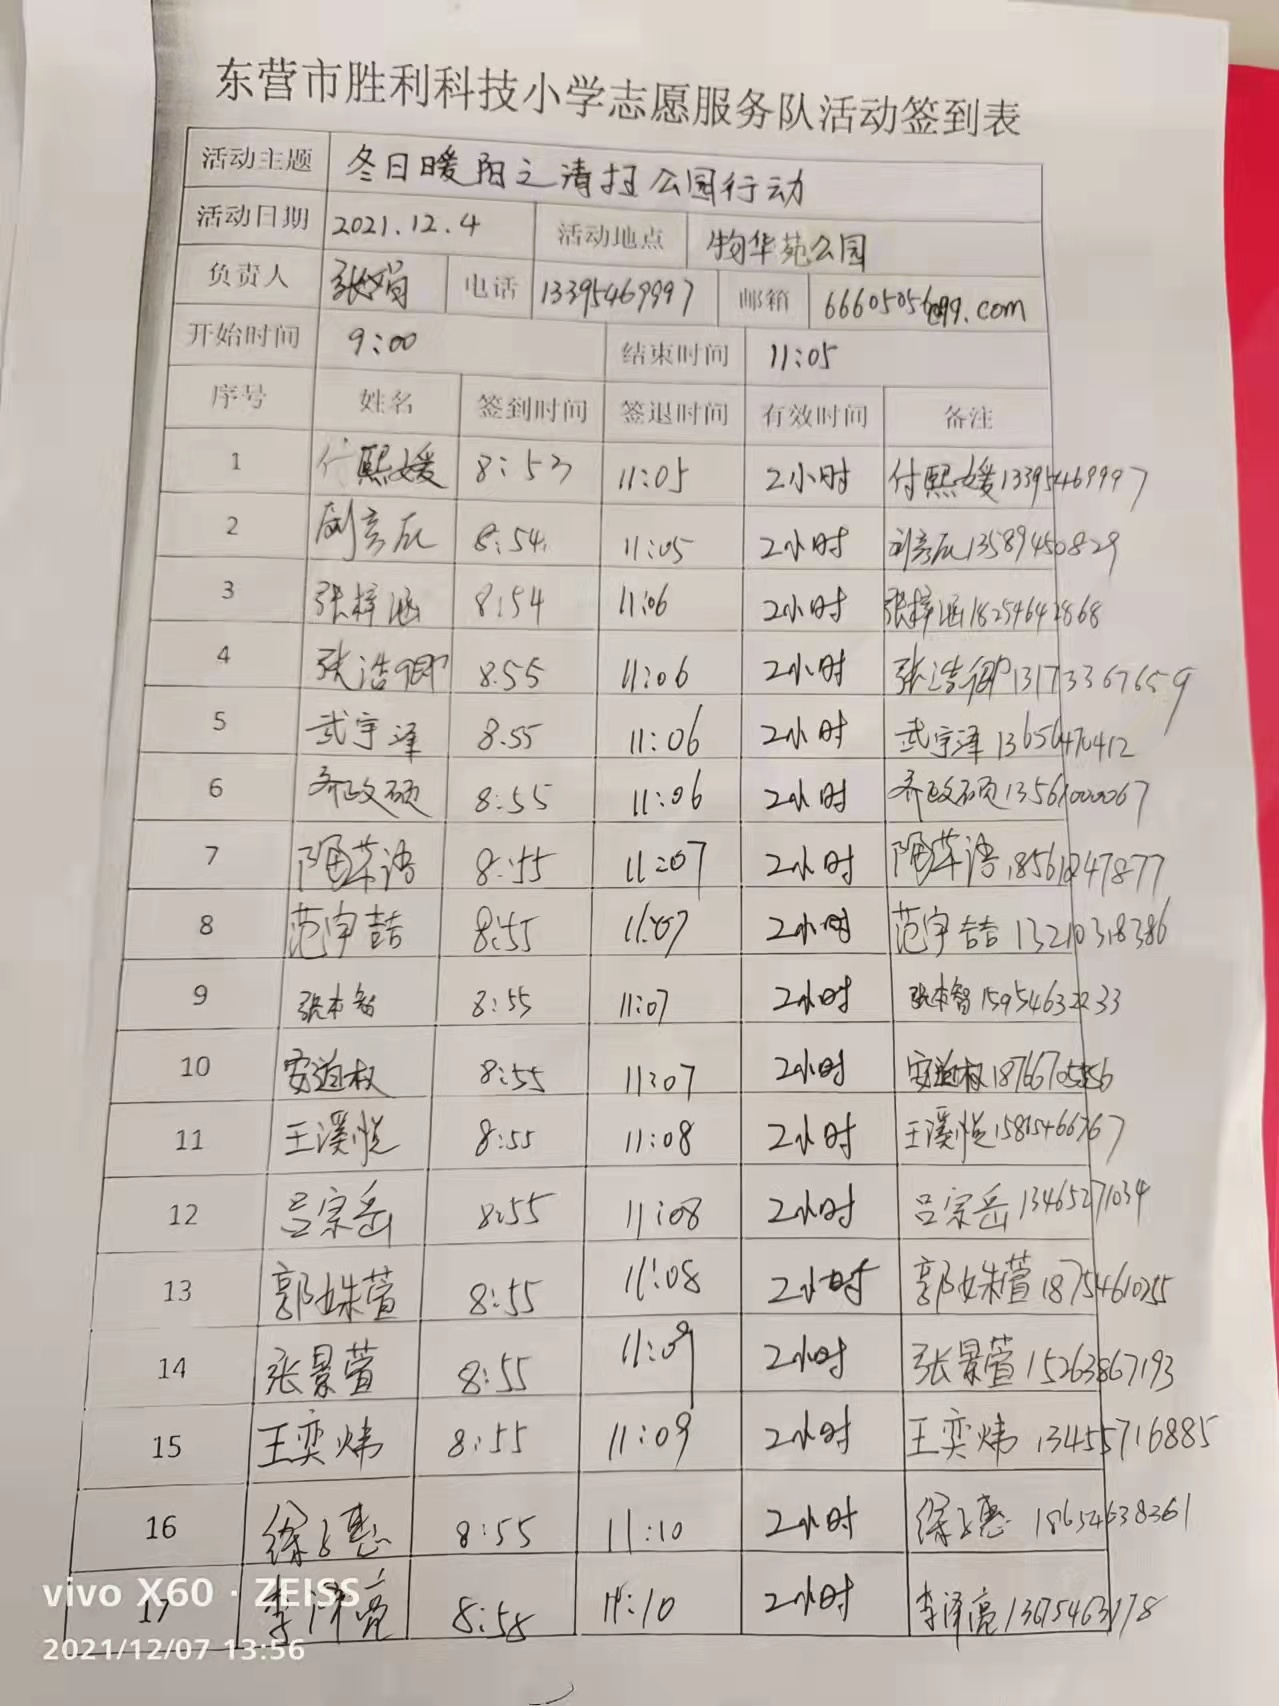 东营市胜利科技小学志愿服务队活动签到表
活动主题 冬日暖阳之清扫公园行动
活动日期 2021.12.4 活动地点 物华苑公园
负责人 张娟 电话 13395469997 邮箱 .com
开始时间 9:00 结束时间 11:05
序号 姓名 签到时间 签退时间 有效时间 备注
1 付熙媛 8:53 11:05 2小时 付熙媛13395469997
2 刘彦辰 8:54 11:05 2小时 刘彦辰13589450829
3 张梓涵 8:54 11:06 2小时 张梓涵18254642868
4 张浩卿 8:55 11:06 2小时 张浩卿13173367659
5 武宇泽 8:55 11:06 2小时 武宇泽 13656470412
6 乔政硕 8:55 11:06 2小时 乔政硕13561000067
7 陶苹语 8:55 11:07 2小时 陶苹语
8 范宇喆 8:55 11:07 2小时 范宇喆 13210318386
9 张本智 8:55 11:07 2小时 张本智15954632233
10 安道权 8:55 11:07 2小时 安道权
11 王溪悦 8:55 11:08 2小时 王溪悦
12 吕宗岳 8:55 11:08 2小时 吕宗岳 13465271034
13 郭姝萱 8:55 11:08 2小时 郭姝萱 18754610255
14 张景萱 8:55 11:09 2小时 张景萱 15263867193
15 王奕炜 8:55 11:09 2小时 王奕炜 13455716885
16 徐子惠 8:55 11:10 2小时 徐子惠 18654638361
17 李泽亮 8:58 11:10 2小时 李泽亮 13675463178
vivo X60 · ZEISS
2021/12/07 13:56